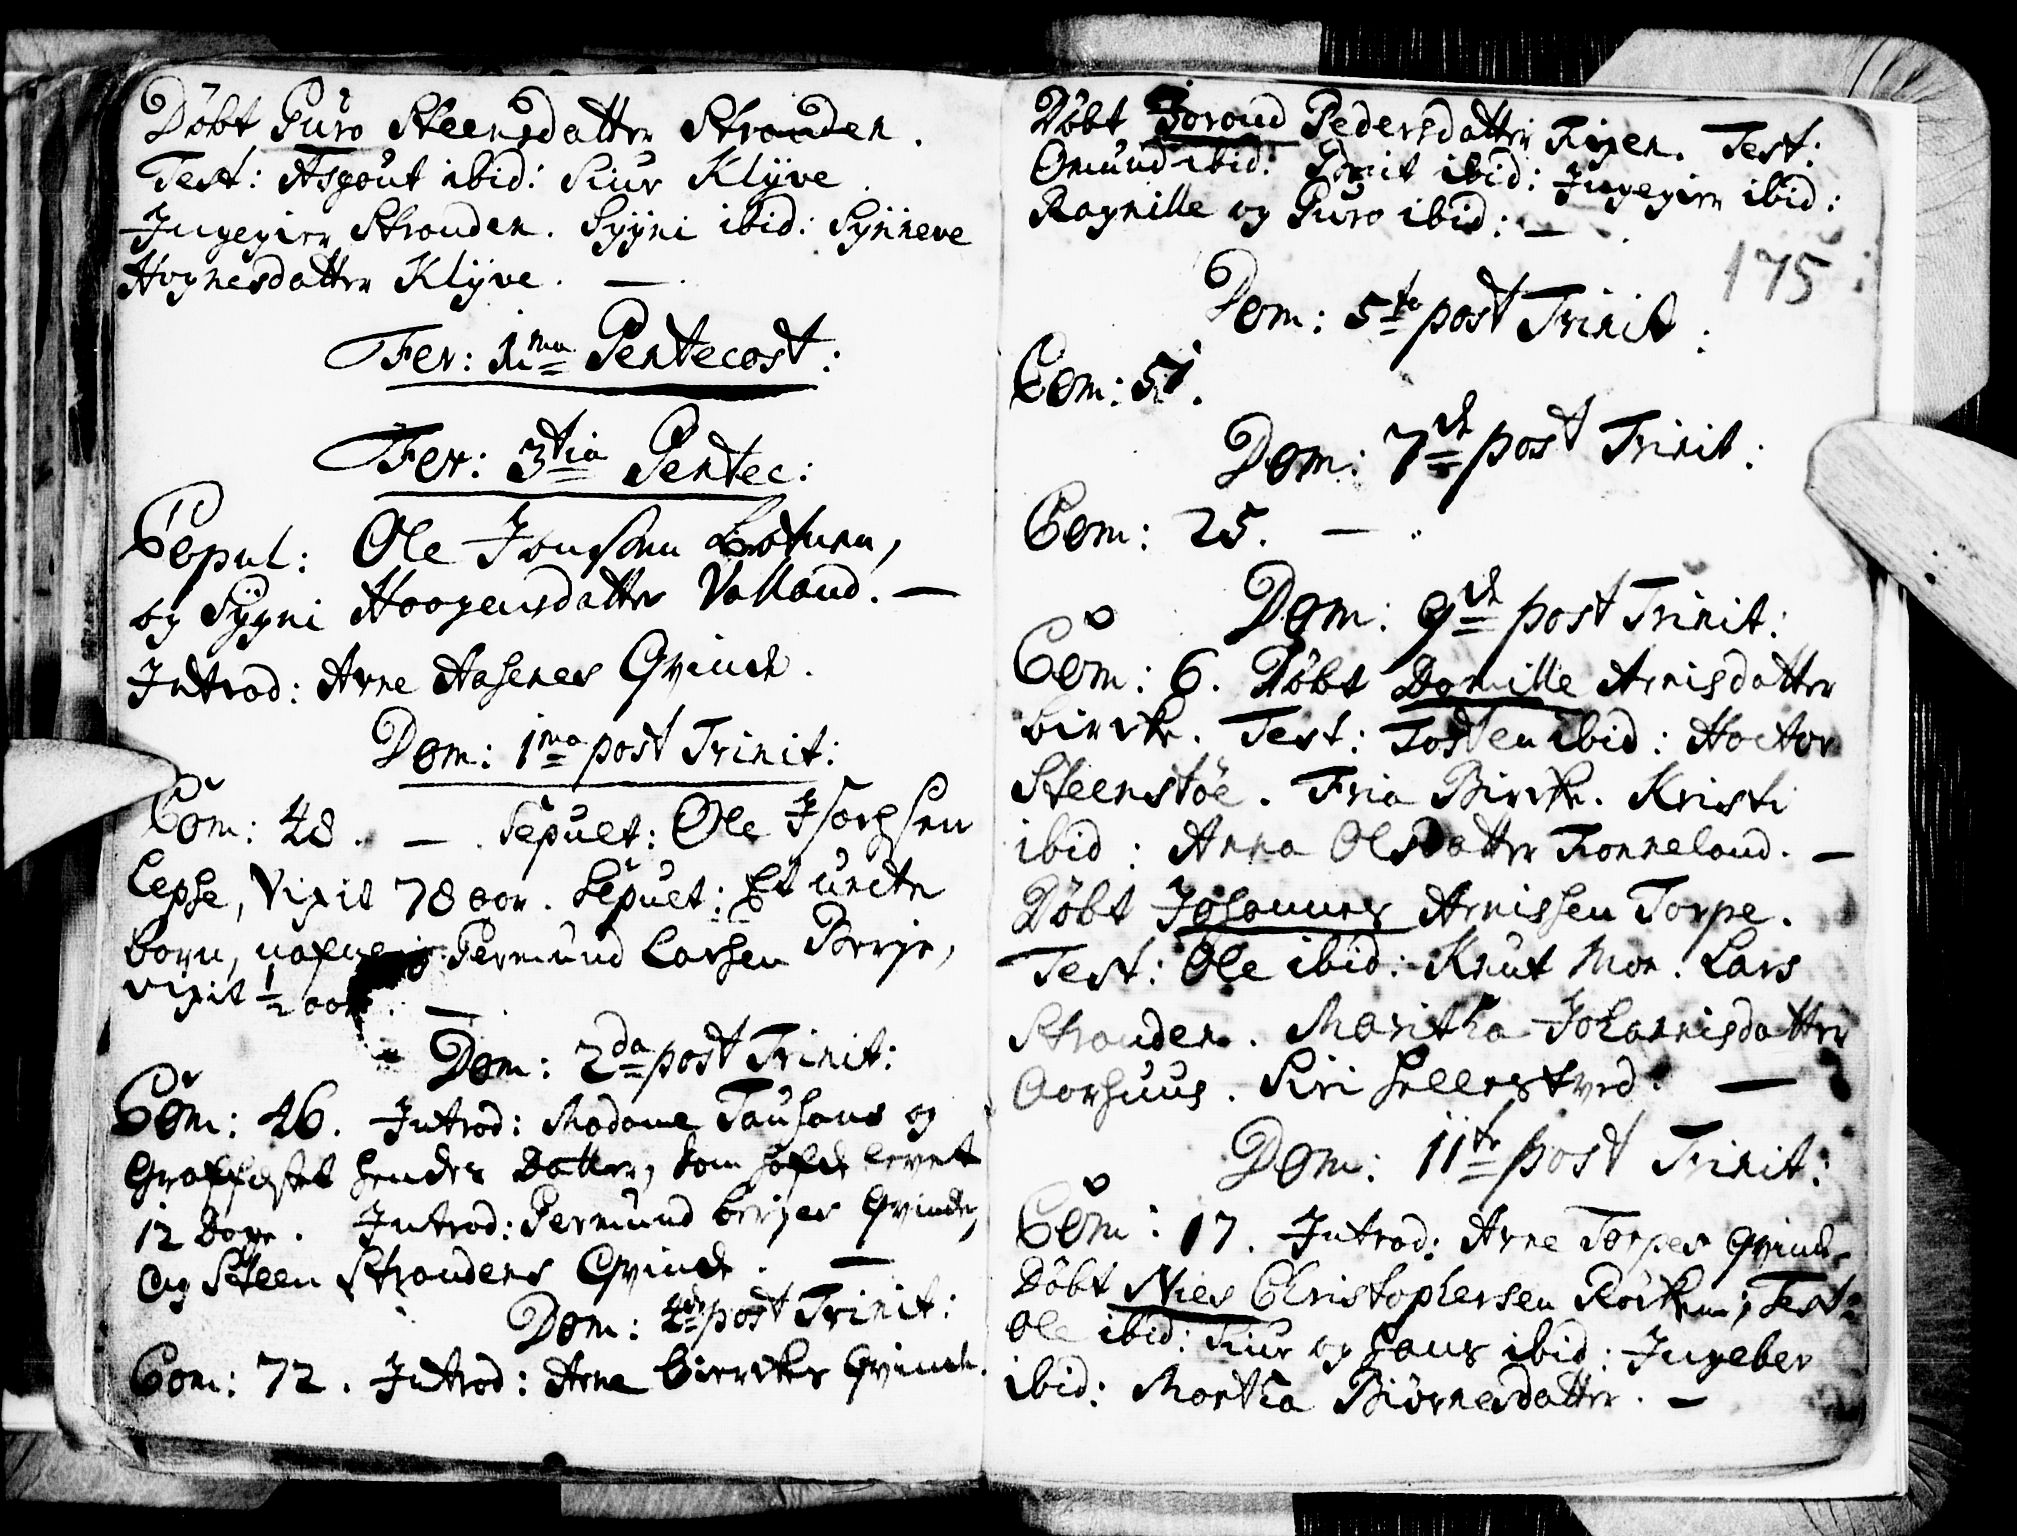 Döbt Guro Steensdatter Stranden.
Test: Asgout ibid: Siur Klÿve.
Ingegier Stranden. Sygni ibid: Synneve
Hognesdatter Klÿve. —
Fer: 1ma Pentecost:
Fer: 3tia Pentec:
Copul: Ole Jonsøn Botnen,
og Sygni Haagensdatter Valland. —
Introd: Arne Aasenes Qvinde.
Dom: 1ma post Trinit:
Com: 48. — Sepult: Ole
Lepse, vixit 78 aar. Sepult: Et unckt
barn, nafnlig Germund Larsen Berje,
vixit ½ aar. —
Dom: 2da post Trinit:
Com: 46. Introd: Madame Tausans og
Graffæstet hendes Datter, som hafde levet
12 Dage. Introd: Germund Berjes Qvinde,
og Steen Strandens Qvinde. —
Dom: 4de post Trinit:
Com: 72. Introd: Arne Birckes Qvinde.
Döbt Joroud Pedersdatter Tigen. Test:
Omund ibid: ibid: Ingegier ibid:
Ragnille og Guro ibid: —
175
Dom: 5te post Trinit:
Com: 51.
Dom: 7de post Trinit:
Com: 25. —
Dom: 9de post Trinit:
Com: 6. Döbt Domille Arnisdatter
Bircke. Test: Tosten ibid: Hoctor
Steenstöe. Fria Bircke. Kristi
ibid: Anna Olsdatter Tonneland. —
Döbt Johannes Arnissen Torpe.
Test: Ole ibid: Knut Moe. Lars
Stranden. Maritha Johannisdatter
Aarhuus. Siri Hellestved. —
Dom: 11te post Trinit:
Com: 17. Introd: Arne Torpes Qvinde
Döbt Niels Christophersen Röcken; Test:
Ole ibid: Siur og Hans ibid: Ingeber
ibid: Martha Biörnesdatter. —